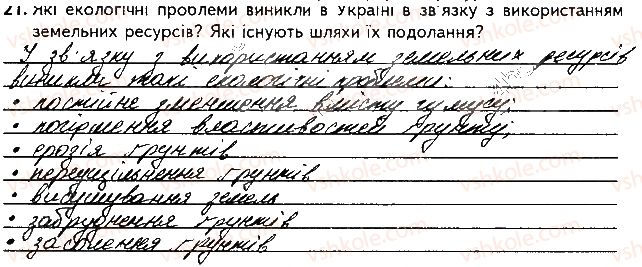 21. Які екологічні проблеми виникли в Україні в зв'язку з використанням
земельних ресурсів? Які існують шляхи їх подолання?
У зв'язку з використанням земельних ресурсів
виникли такі екологічні проблеми:
• постійне зменшення вмісту гумусу;
• погіршення властивостей ґрунту;
• ерозія ґрунтів
• переущільнення ґрунтів
• висушування земель
• забруднення ґрунтів
• засолення ґрунтів